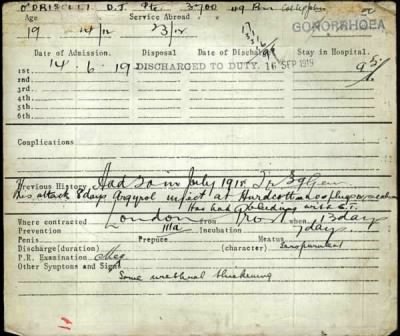 O'DRISCOLL D.J. Pte 3700 49 Bn
GONORRHOEA
Age
Service Abroad
19
Date of Admission.
Disposal
Date of Discharge
Stay in Hospital.
1st
14.6.19
DISCHARGED TO DUTY.
16 SEP 1919
95
2nd
3rd
4th
5th
6th
Complications
Previous History Had so in July 1918
This attack 8 days Argyrol inject at Hurdcott
Has had bleeding with
London
Where contracted from Prost when 13 days
Prevention IIIa Incubation 7 days
Penis Prepuce Meatus
Discharge (duration) (character) Seropurulent
P.R. Examination Neg
Other Symptoms and Signs
Some urethral thickening